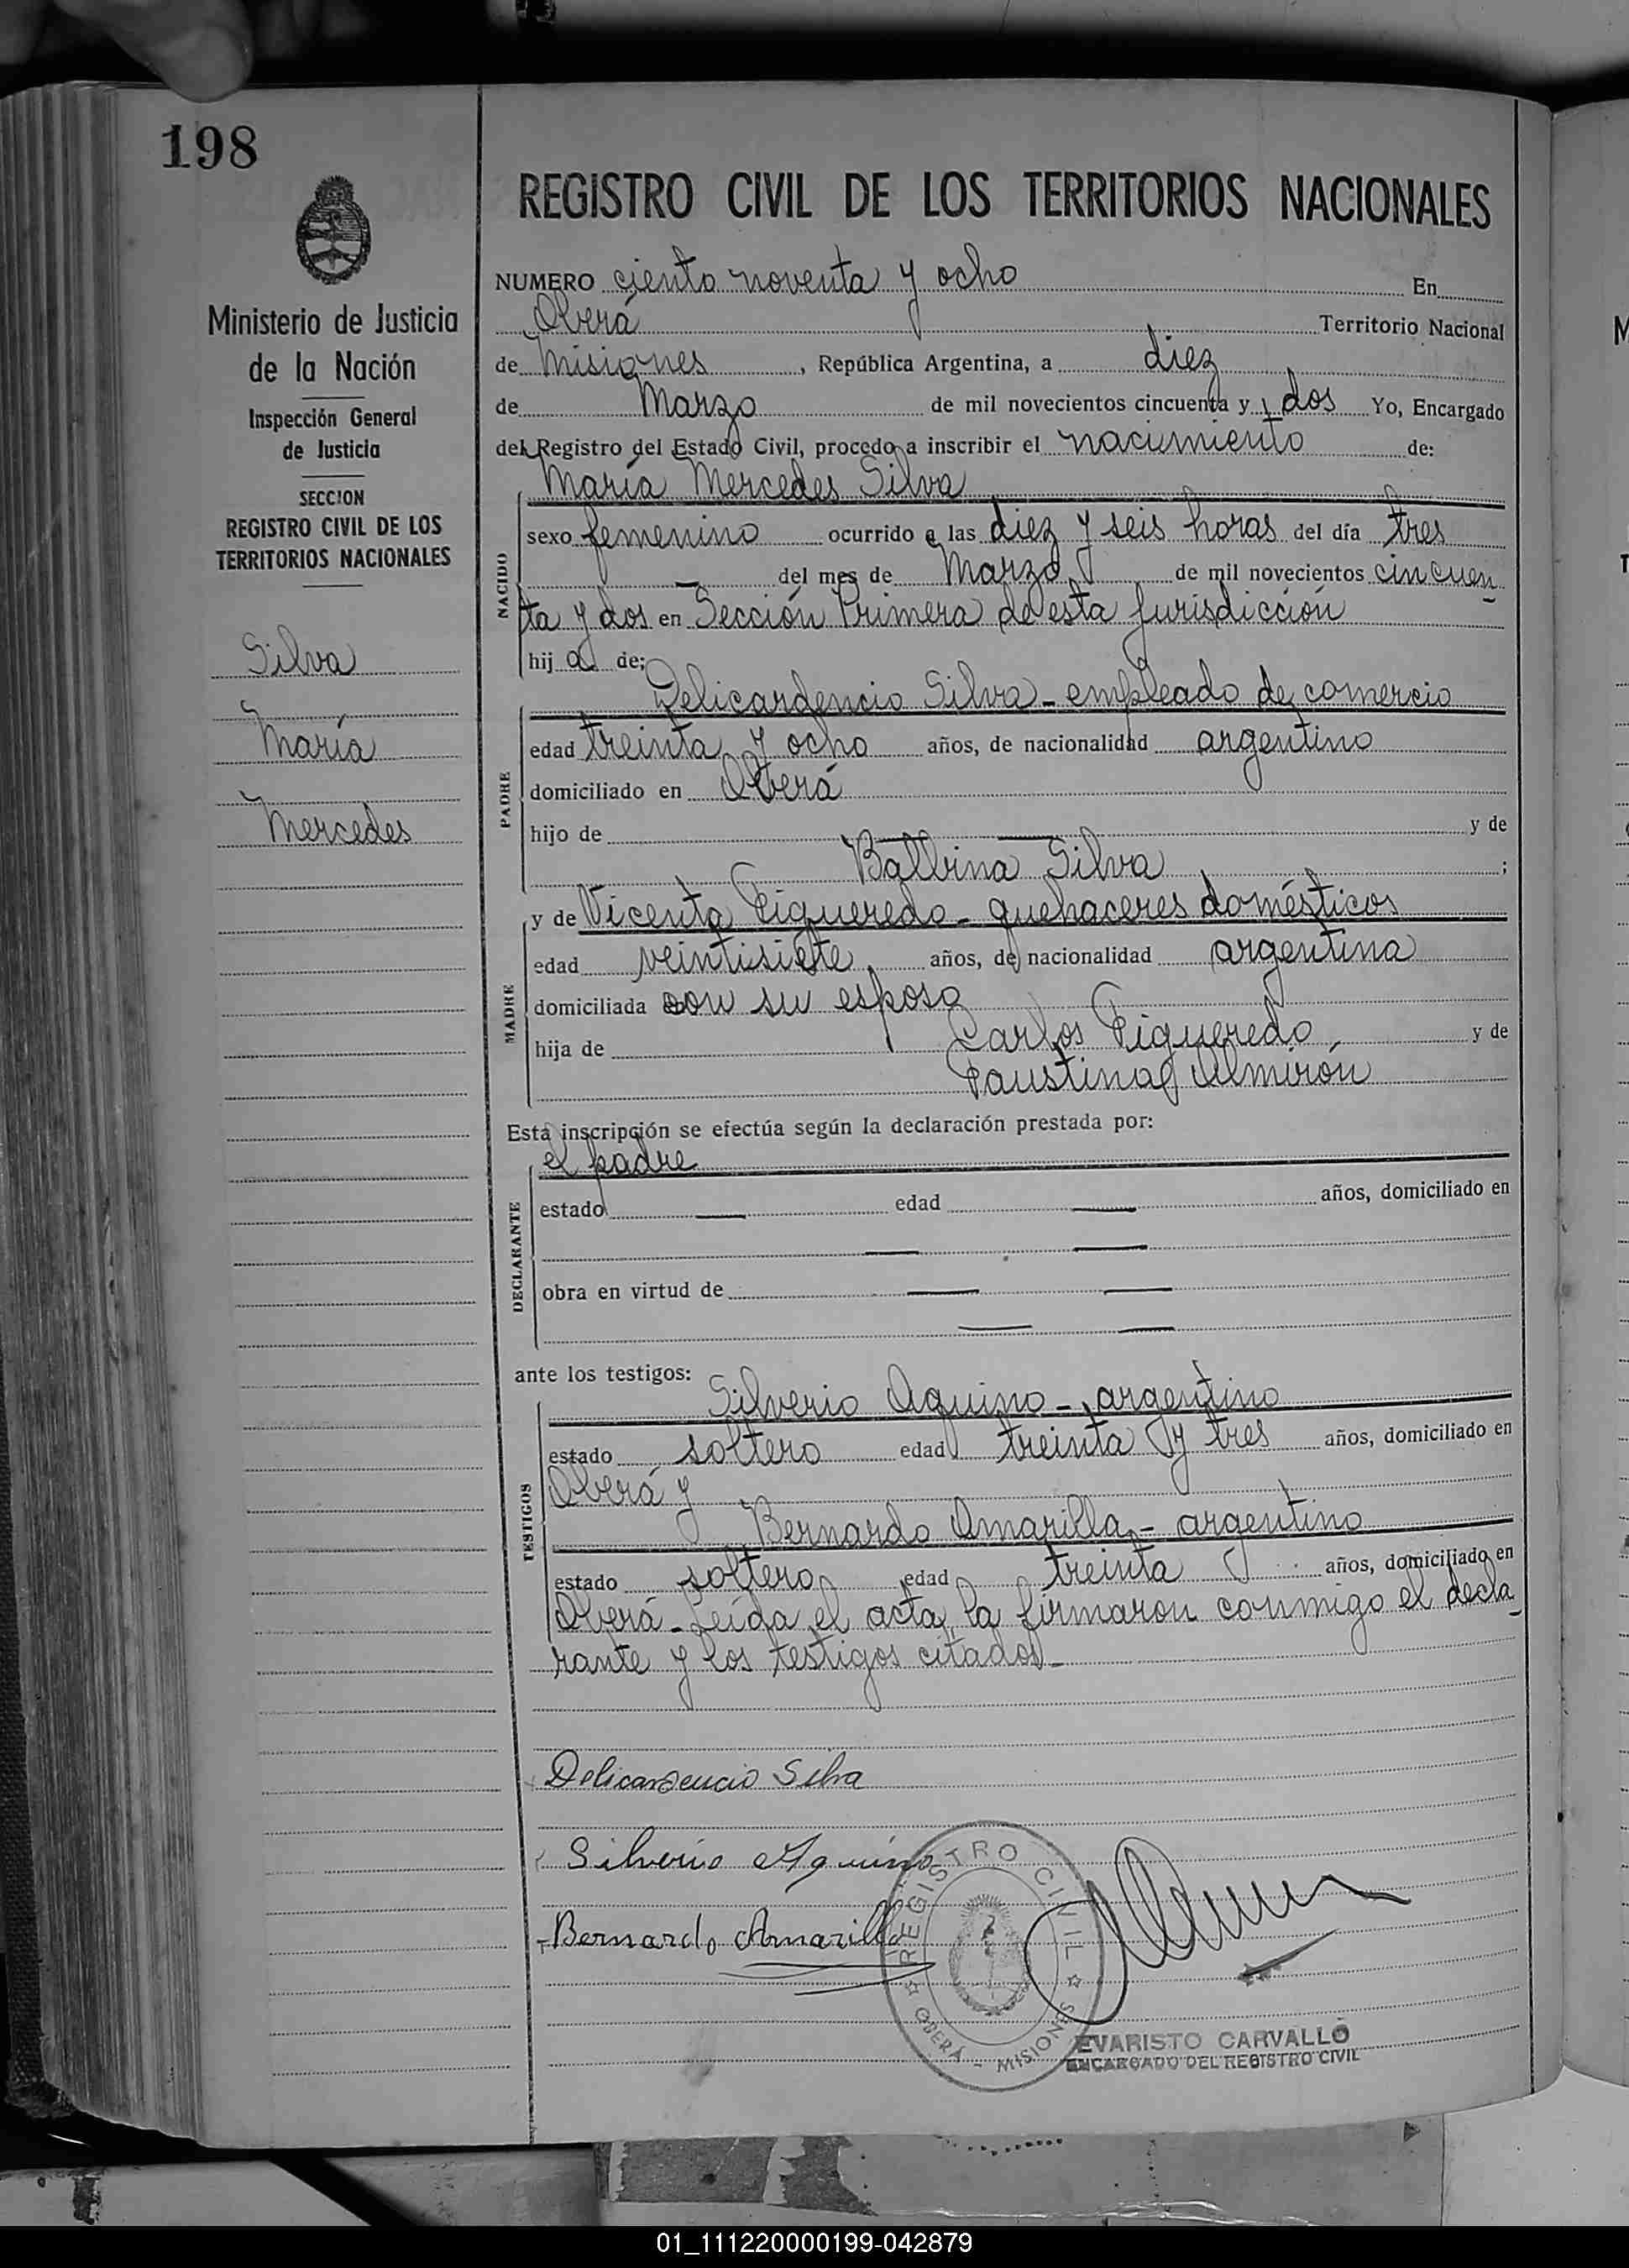 198
Ministerio de Justicia
de la Nación
Inspección General
de Justicia
SECCION
REGISTRO CIVIL DE LOS
TERRITORIOS NACIONALES
Silva
María
Mercedes
REGISTRO CIVIL DE LOS TERRITORIOS NACIONALES
NUMERO ciento noventa y ocho En
Oberá Territorio Nacional
de Misiones, República Argentina, a diez
de Marzo de mil novecientos cincuenta y dos Yo, Encargado
del Registro del Estado Civil, procedo a inscribir el nacimiento de:
María Mercedes Silva
NACIDO
sexo femenino ocurrido a las diez y seis horas del día tres
— del mes de Marzo de mil novecientos cincuen-
ta y dos en Sección Primera de esta Jurisdicción
hij a de;
Delicardencio Silva - empleado de comercio
PADRE
edad treinta y ocho años, de nacionalidad argentino
domiciliado en Oberá
hijo de — — y de
Balbina Silva ;
y de Vicenta Figueredo - quehaceres domésticos
MADRE
edad veintisiete años, de nacionalidad argentina
domiciliada con su esposo
hija de Carlos Figueredo y de
Faustina Almirón
Esta inscripción se efectúa según la declaración prestada por:
el padre
DECLARANTE
estado — edad — años, domiciliado en
— —
obra en virtud de — —
— —
ante los testigos:
Silverio Aquino - argentino
TESTIGOS
estado soltero edad treinta y tres años, domiciliado en
Oberá y
Bernardo Amarilla - argentino
estado soltero edad treinta años, domiciliado en
Oberá - Leída el acta, la firmaron conmigo el decla-
rante y los testigos citados -
Delicardencio Silva
Silverio Aquino
Bernardo Amarilla
REGISTRO CIVIL
OBERÁ - MISIONES
EVARISTO CARVALLO
ENCARGADO DEL REGISTRO CIVIL
01_111220000199-042879